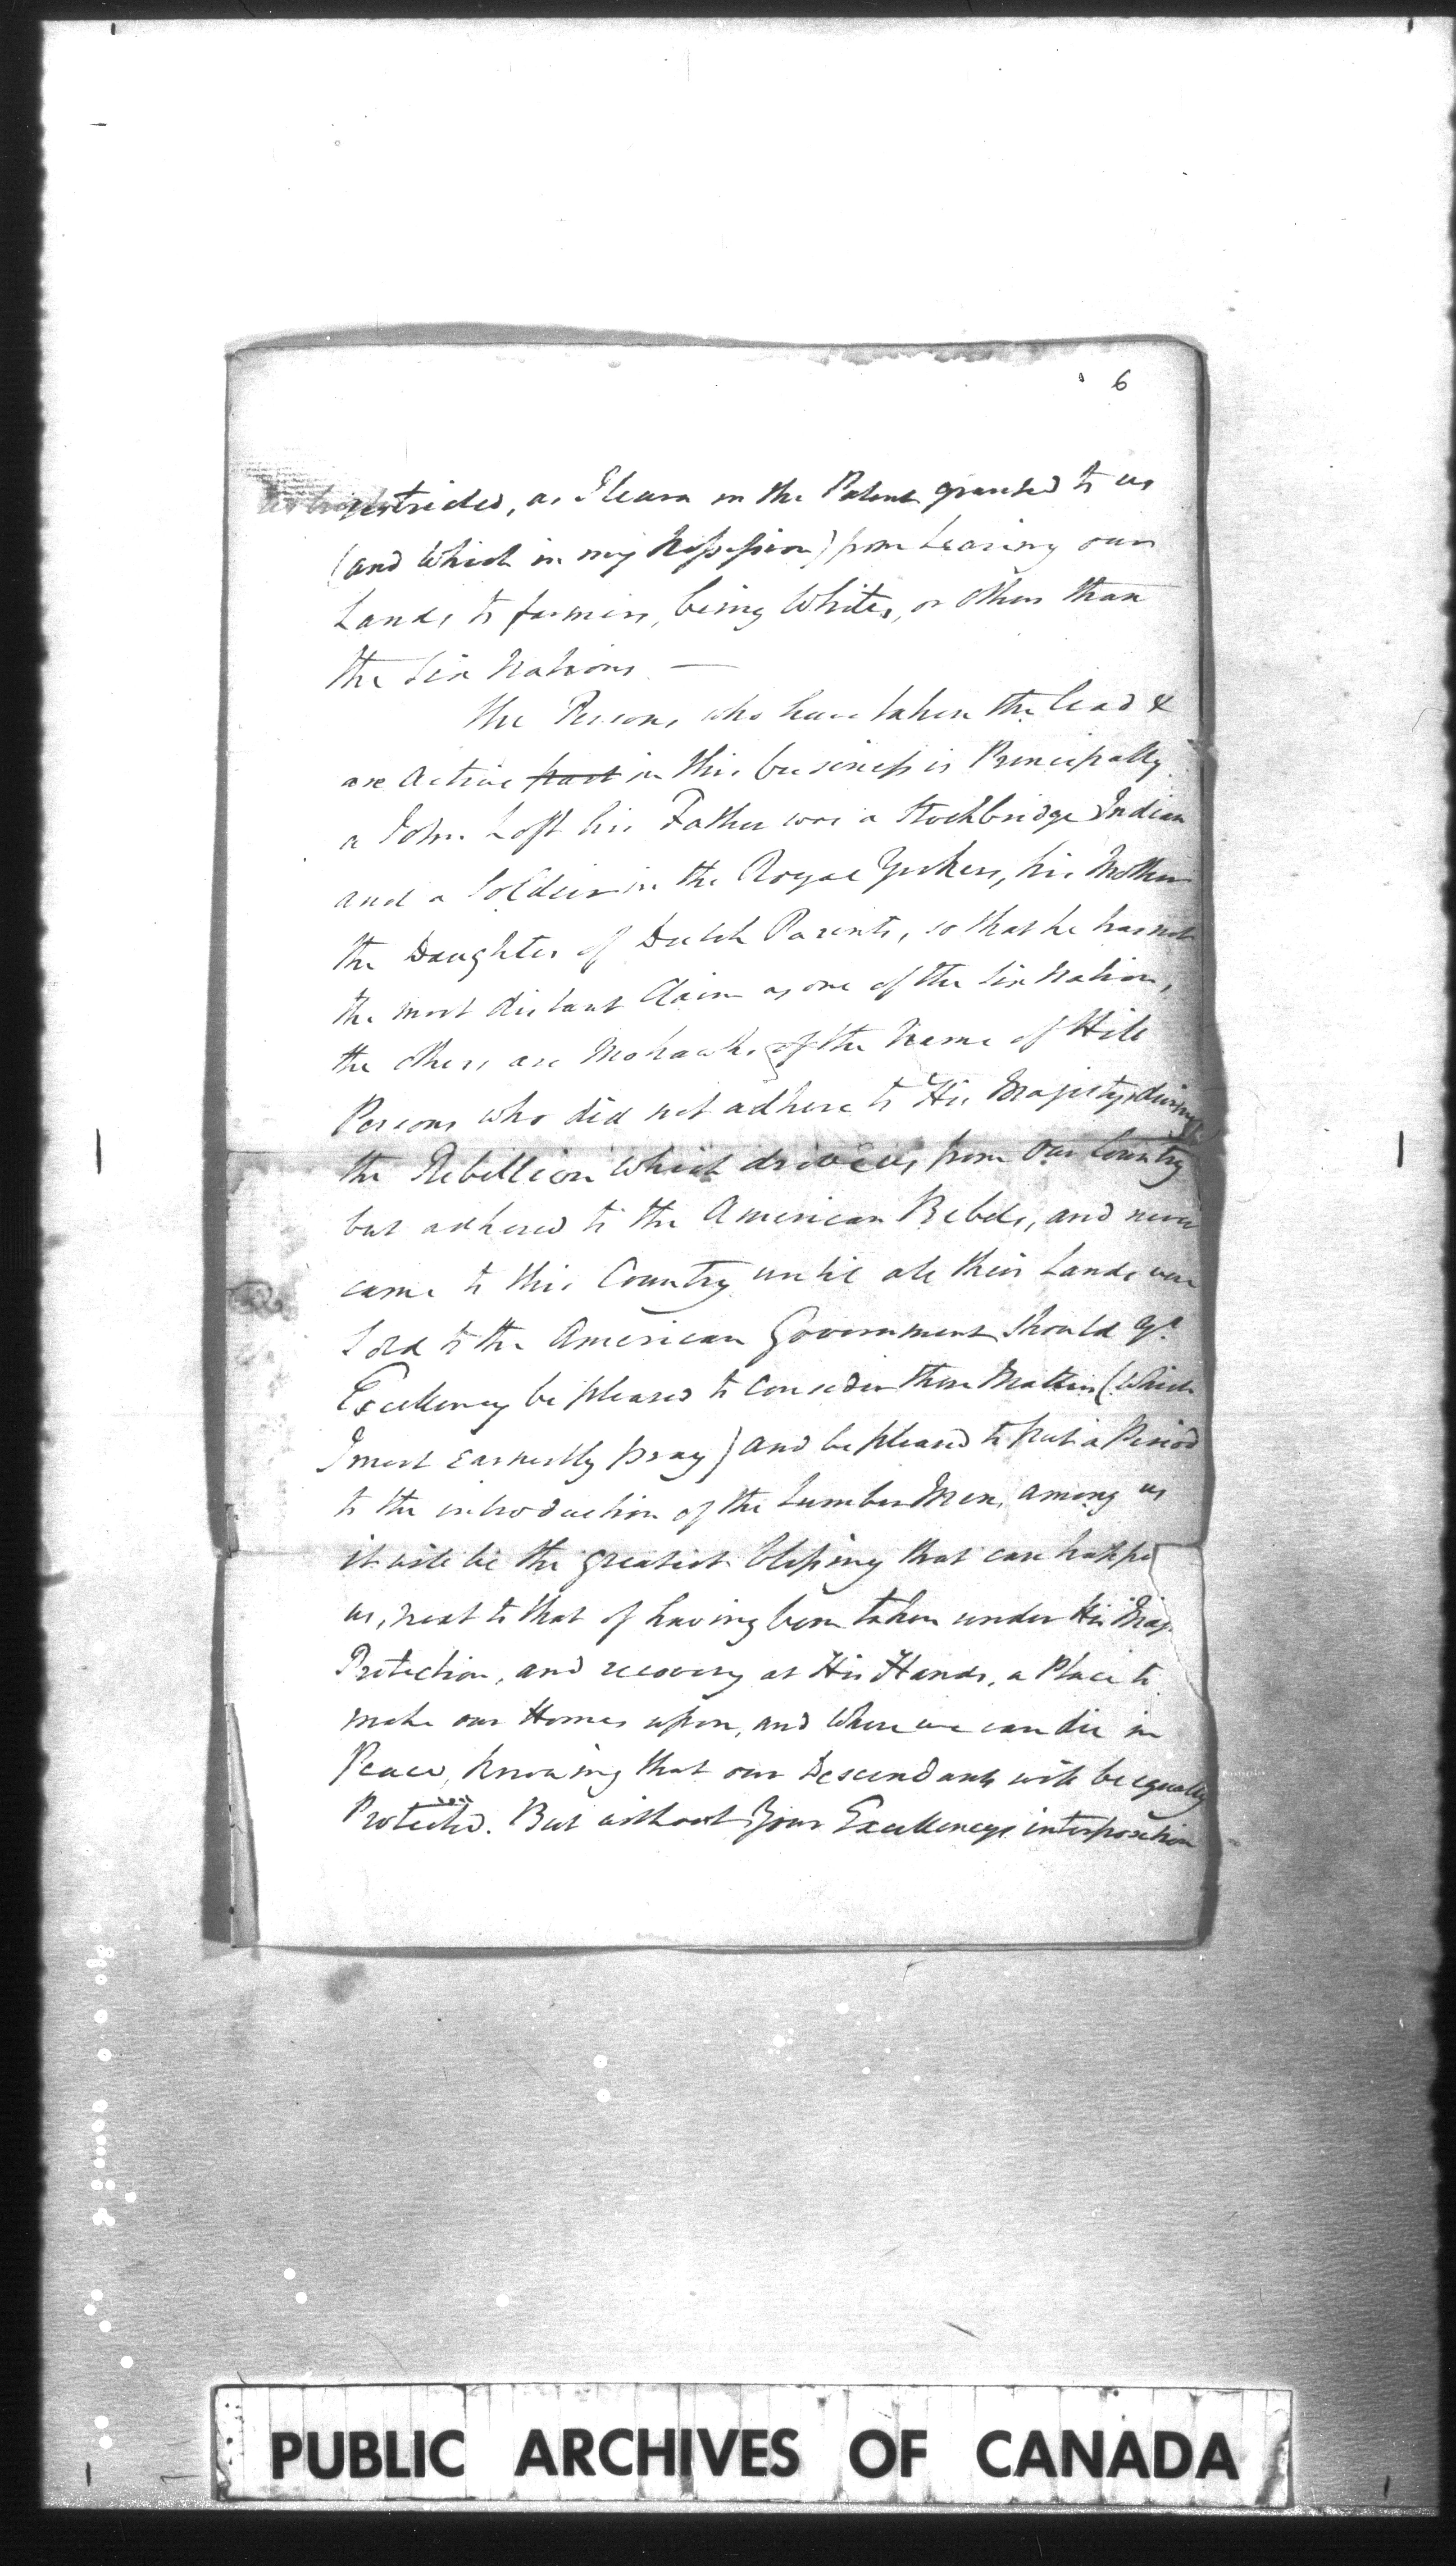 6
restricted, as I learn in the Patent granted to us
(and which in my Possession) from Leasing our
Lands to farmers, being Whites, or other than
the Six Nations —
The Persons who have taken the lead &
are active part in this business is Principally
a John Loft his Father was a Stockbridge Indian
and a Soldier in the Royal Yorkers, his Mother
the Daughter of Dutch Parents, so that he has not
the most distant Claim as one of the Six Nations,
the others are Mohawks of the Name of Hill
Persons who did not adhere to His Majesty during
the Rebellion which drove us from our Country
but adhered to the American Rebels, and never
came to this Country until all their Lands were
Sold to the American Government Should Yr
Excellency be pleased to consider these Matters (which
I most earnestly pray) and be pleased to put a Period
to the introduction of the Lumber Men, among us
it will be the greatest blessing that can happe
us, next to that of having been taken under His Maj
Protection, and recovery at His Hands, a Place to
make our Homes upon, and where we can die in
Peace, knowing that our Descendants will be equally
Protected. But without Your Excellencys interposition
PUBLIC ARCHIVES OF CANADA